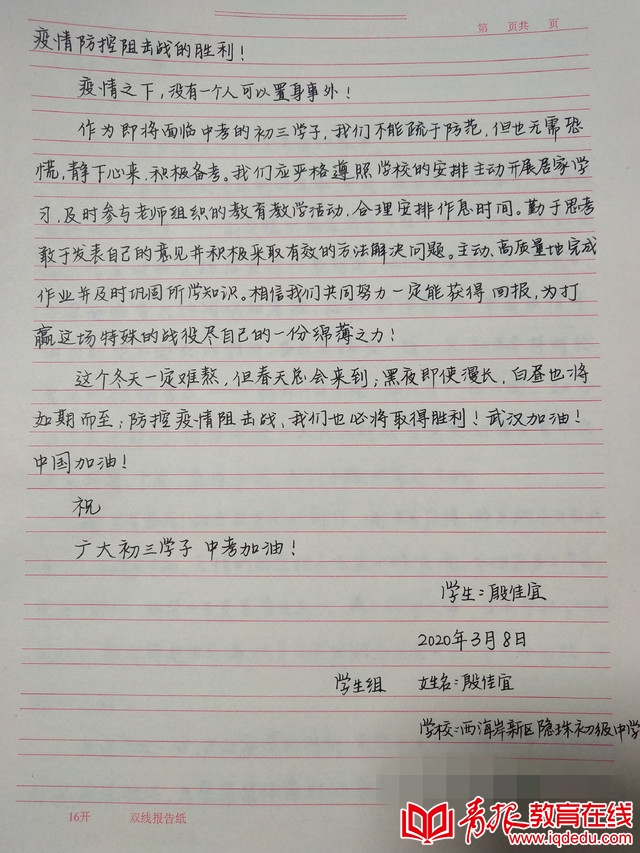 第 页共 页
疫情防控阻击战的胜利!
疫情之下,没有一个人可以置身事外!
作为即将面临中考的初三学子,我们不能疏于防范,但也无需恐
慌,静下心来,积极备考。我们应严格遵照学校的安排主动开展居家学
习,及时参与老师组织的教育教学活动,合理安排作息时间。勤于思考
敢于发表自己的意见并积极采取有效的方法解决问题。主动、高质量地完成
作业并及时巩固所学知识。相信我们共同努力一定能获得回报,为打
赢这场特殊的战役尽自己的一份绵薄之力!
这个冬天一定难熬,但春天总会来到;黑夜即使漫长,白昼也将
如期而至;防控疫情阻击战,我们也必将取得胜利!武汉加油!
中国加油!
祝
广大初三学子 中考加油!
学生:殷佳宜
2020年3月8日
学生组 姓名:殷佳宜
学校:西海岸新区隐珠初级中学
16开 双线报告纸
青报教育在线
www.iqdedu.com